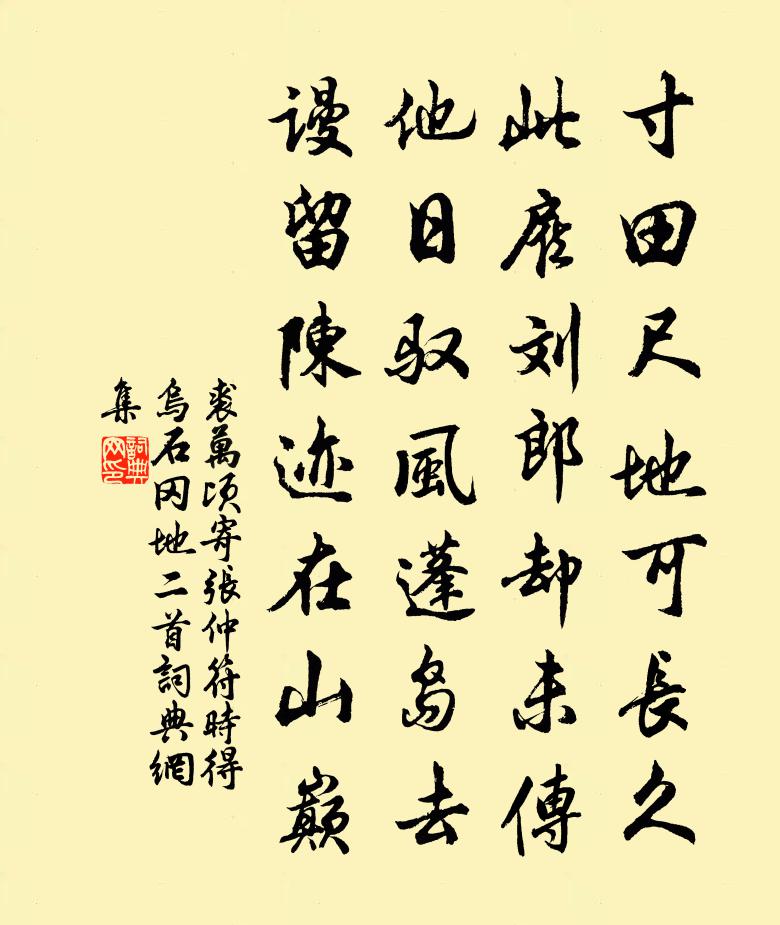 寸田尺地可長久
此雇刘郎却未傳
他日驭風蓬島去
谩留陳迹在山巔
裘萬頃寄張仲符時得
烏石冈地二首詞典網
集
詞典
网印